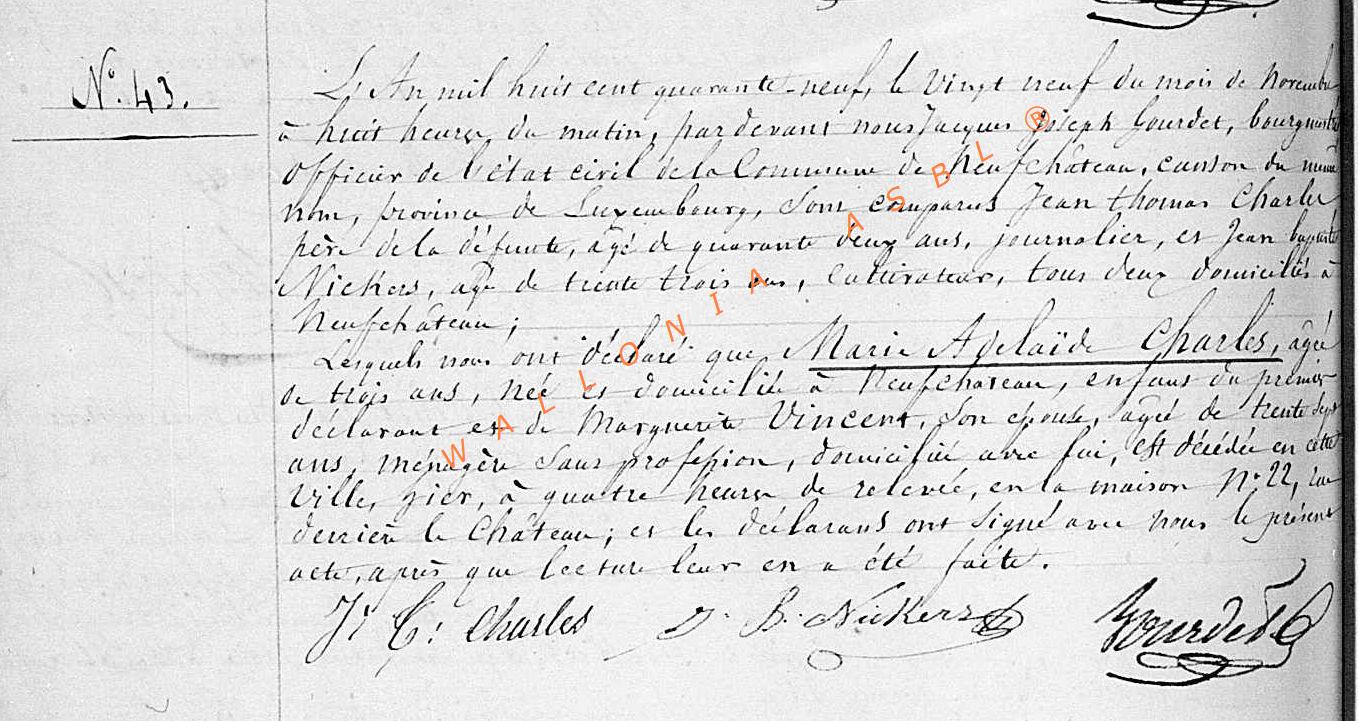 N° 43.
L'An mil huit cent quarante-neuf, le vingt neuf du mois de novembre
à huit heures du matin, pardevant nous Jacques Joseph Gourdet, bourgmestre
officier de l'état civil de la Commune de Neufchâteau, canton du même
nom, province de Luxembourg, sont comparus Jean Thomas Charles
père de la défunte, âgé de quarante deux ans, journalier, et Jean baptiste
Nickers, âgé de trente trois ans, cultivateur, tous deux domiciliés à
Neufchâteau;
Lesquels nous ont déclaré que Marie Adelaïde Charles, âgée
de trois ans, née et domiciliée à Neufchateau, enfant du premier
déclarant et de Marguerite Vincent, son épouse, âgée de trente sept
ans, ménagère sans profession, domiciliée avec lui, est décédée en cette
ville, hier, à quatre heures de relevée, en la maison N° 22, rue
derrière le Château; et les déclarans ont signé avec nous le présent
acte, après que lecture leur en a été faite.
J: T: Charles J. B. Nickers Gourdet
WALLONIA ASBL ®